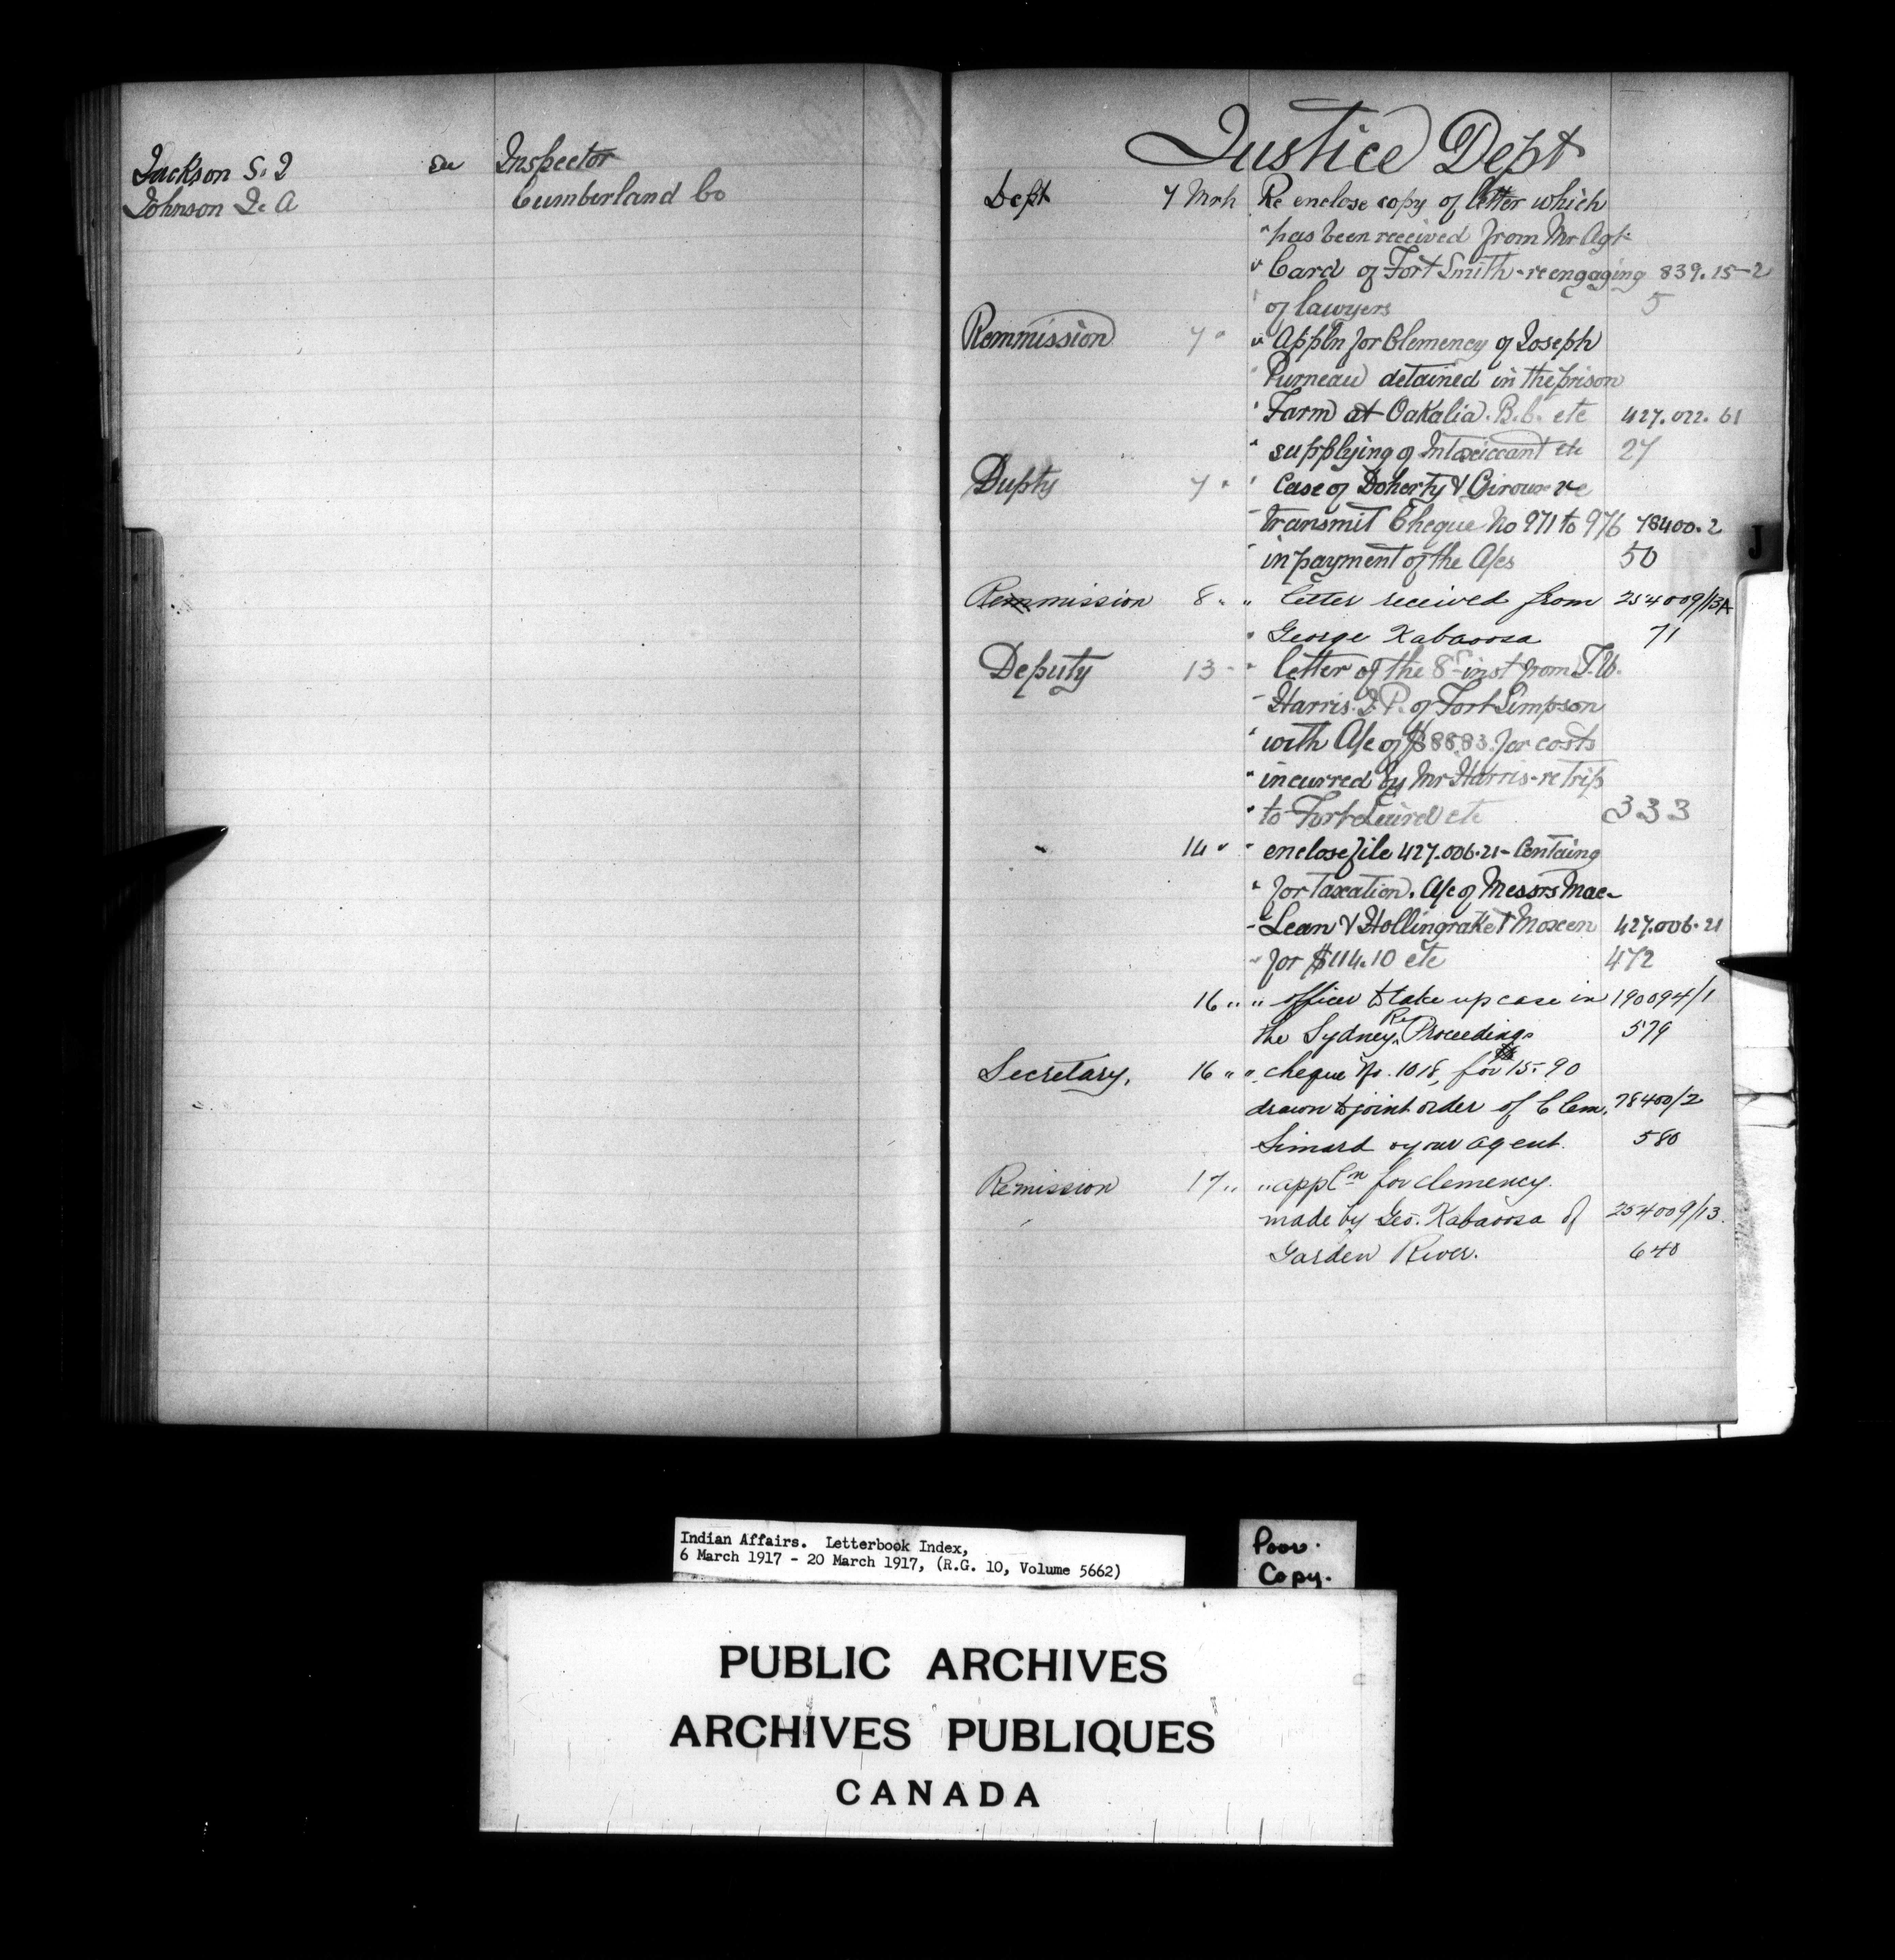 Jackson S. J see Inspector
Johnson J. A Cumberland Co
Justice Dept
Dept 7 Mrh Re enclose copy of letter which
" has been received from Mr Agt.
" Card of Fort Smith - re engaging 839.15-2
" of lawyers 5
Remmission 7 " " Appln for Clemency of Joseph
" Purneau detained in the prison
" Farm at Oakalia. B.C. etc 427.022.61
" supplying of Intoxiccant etc 27
Dupty 7 " " Case of Doherty & Giroux re
" transmit Cheque No 971 to 976 78400.2
" in payment of the A/cs 50
Remmission 8 " " letter received from 254009/13A
" George Kabaoosa 71
Deputy 13 " " letter of the 8th inst from T.W.
" Harris. J.P. of Fort Simpson
" with A/c of $88.83. for costs
" incurred by Mr Harris - re trip
" to Fort Laird etc 333
" 14 " " enclose file 427.006.21 - Containg
" for taxation. A/c of Messrs Mac-
" Lean & Hollingrake & Moxen 427.006.21
" for $114.10 etc 472
16 " " officer to take up case in 190094/1
Re
the Sydney Proceedings 579
Secretary, 16 " " cheque No. 1018, for 15.90
drawn to joint order of C Cem. 78400/2
Simard & your agent. 580
Remission 17 " " appln for clemency.
made by Geo. Kabaoosa of 254009/13.
Garden River. 640
J
Indian Affairs. Letterbook Index,
6 March 1917 - 20 March 1917, (R.G. 10, Volume 5662)
Poor.
Copy.
PUBLIC ARCHIVES
ARCHIVES PUBLIQUES
CANADA